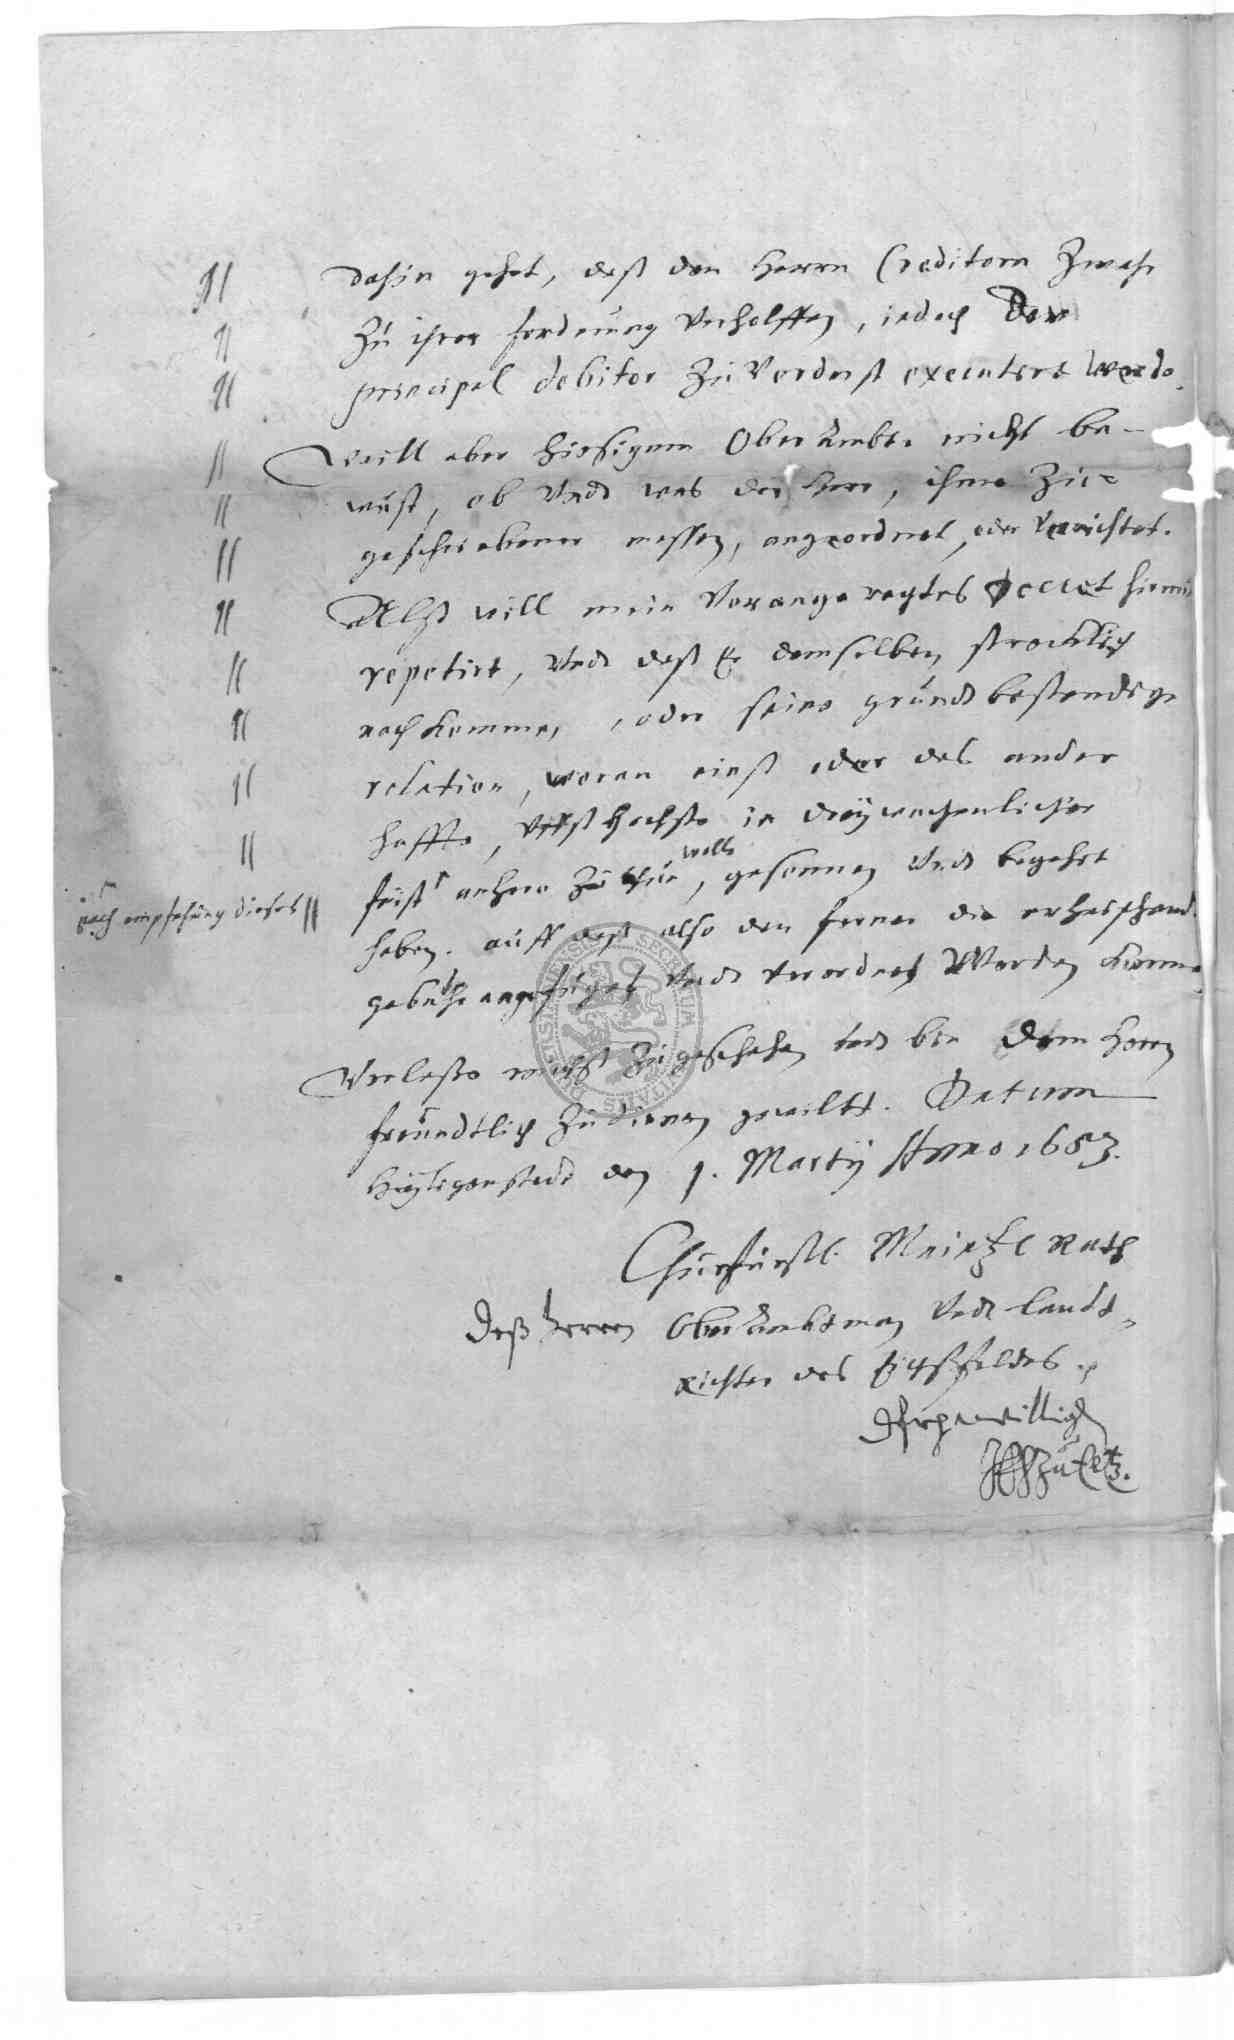 dahin gehet, daß den Herrn Creditorn Zwahr
Zu ihrer forderung Verholffen, iedoch Der
principal debitor Zu Vorderst executirt werde.
Weill aber hiesigem Ober Ambte nicht be-
wust, ob Vndt was der Herr, ihme Zue
geschriebener massen, angeordnet, oder Verrichtet.
Alß will mein Vorangeregtes Decret hiermit
repetirt, Vndt daß Er demselben strecklich
nachkomme, oder seine grundt bestendige
relation, woran einß oder das ander
haffte, Vffst hochste in dreÿ wochenlicher
frist anhero Zu thun wolle, gesonnen Vndt begehrt
nach empfahung dieses
haben. auff daß also den ferner die erheischend
gebühr angefüget Vndt Verordnet Werden könne.
Verlaße mich Zu geschehen vndt bin dem Herrn
freundtlich Zu dienen gewillt. Datum
Heÿligenstadt den 1. Martÿ Anno 1653.
Churfürstl. Maintzl Rath
Deß Herren Ober Ambtman Vndt landt
Richter des Eichßfeldes
SIGILLUM SECRETUM